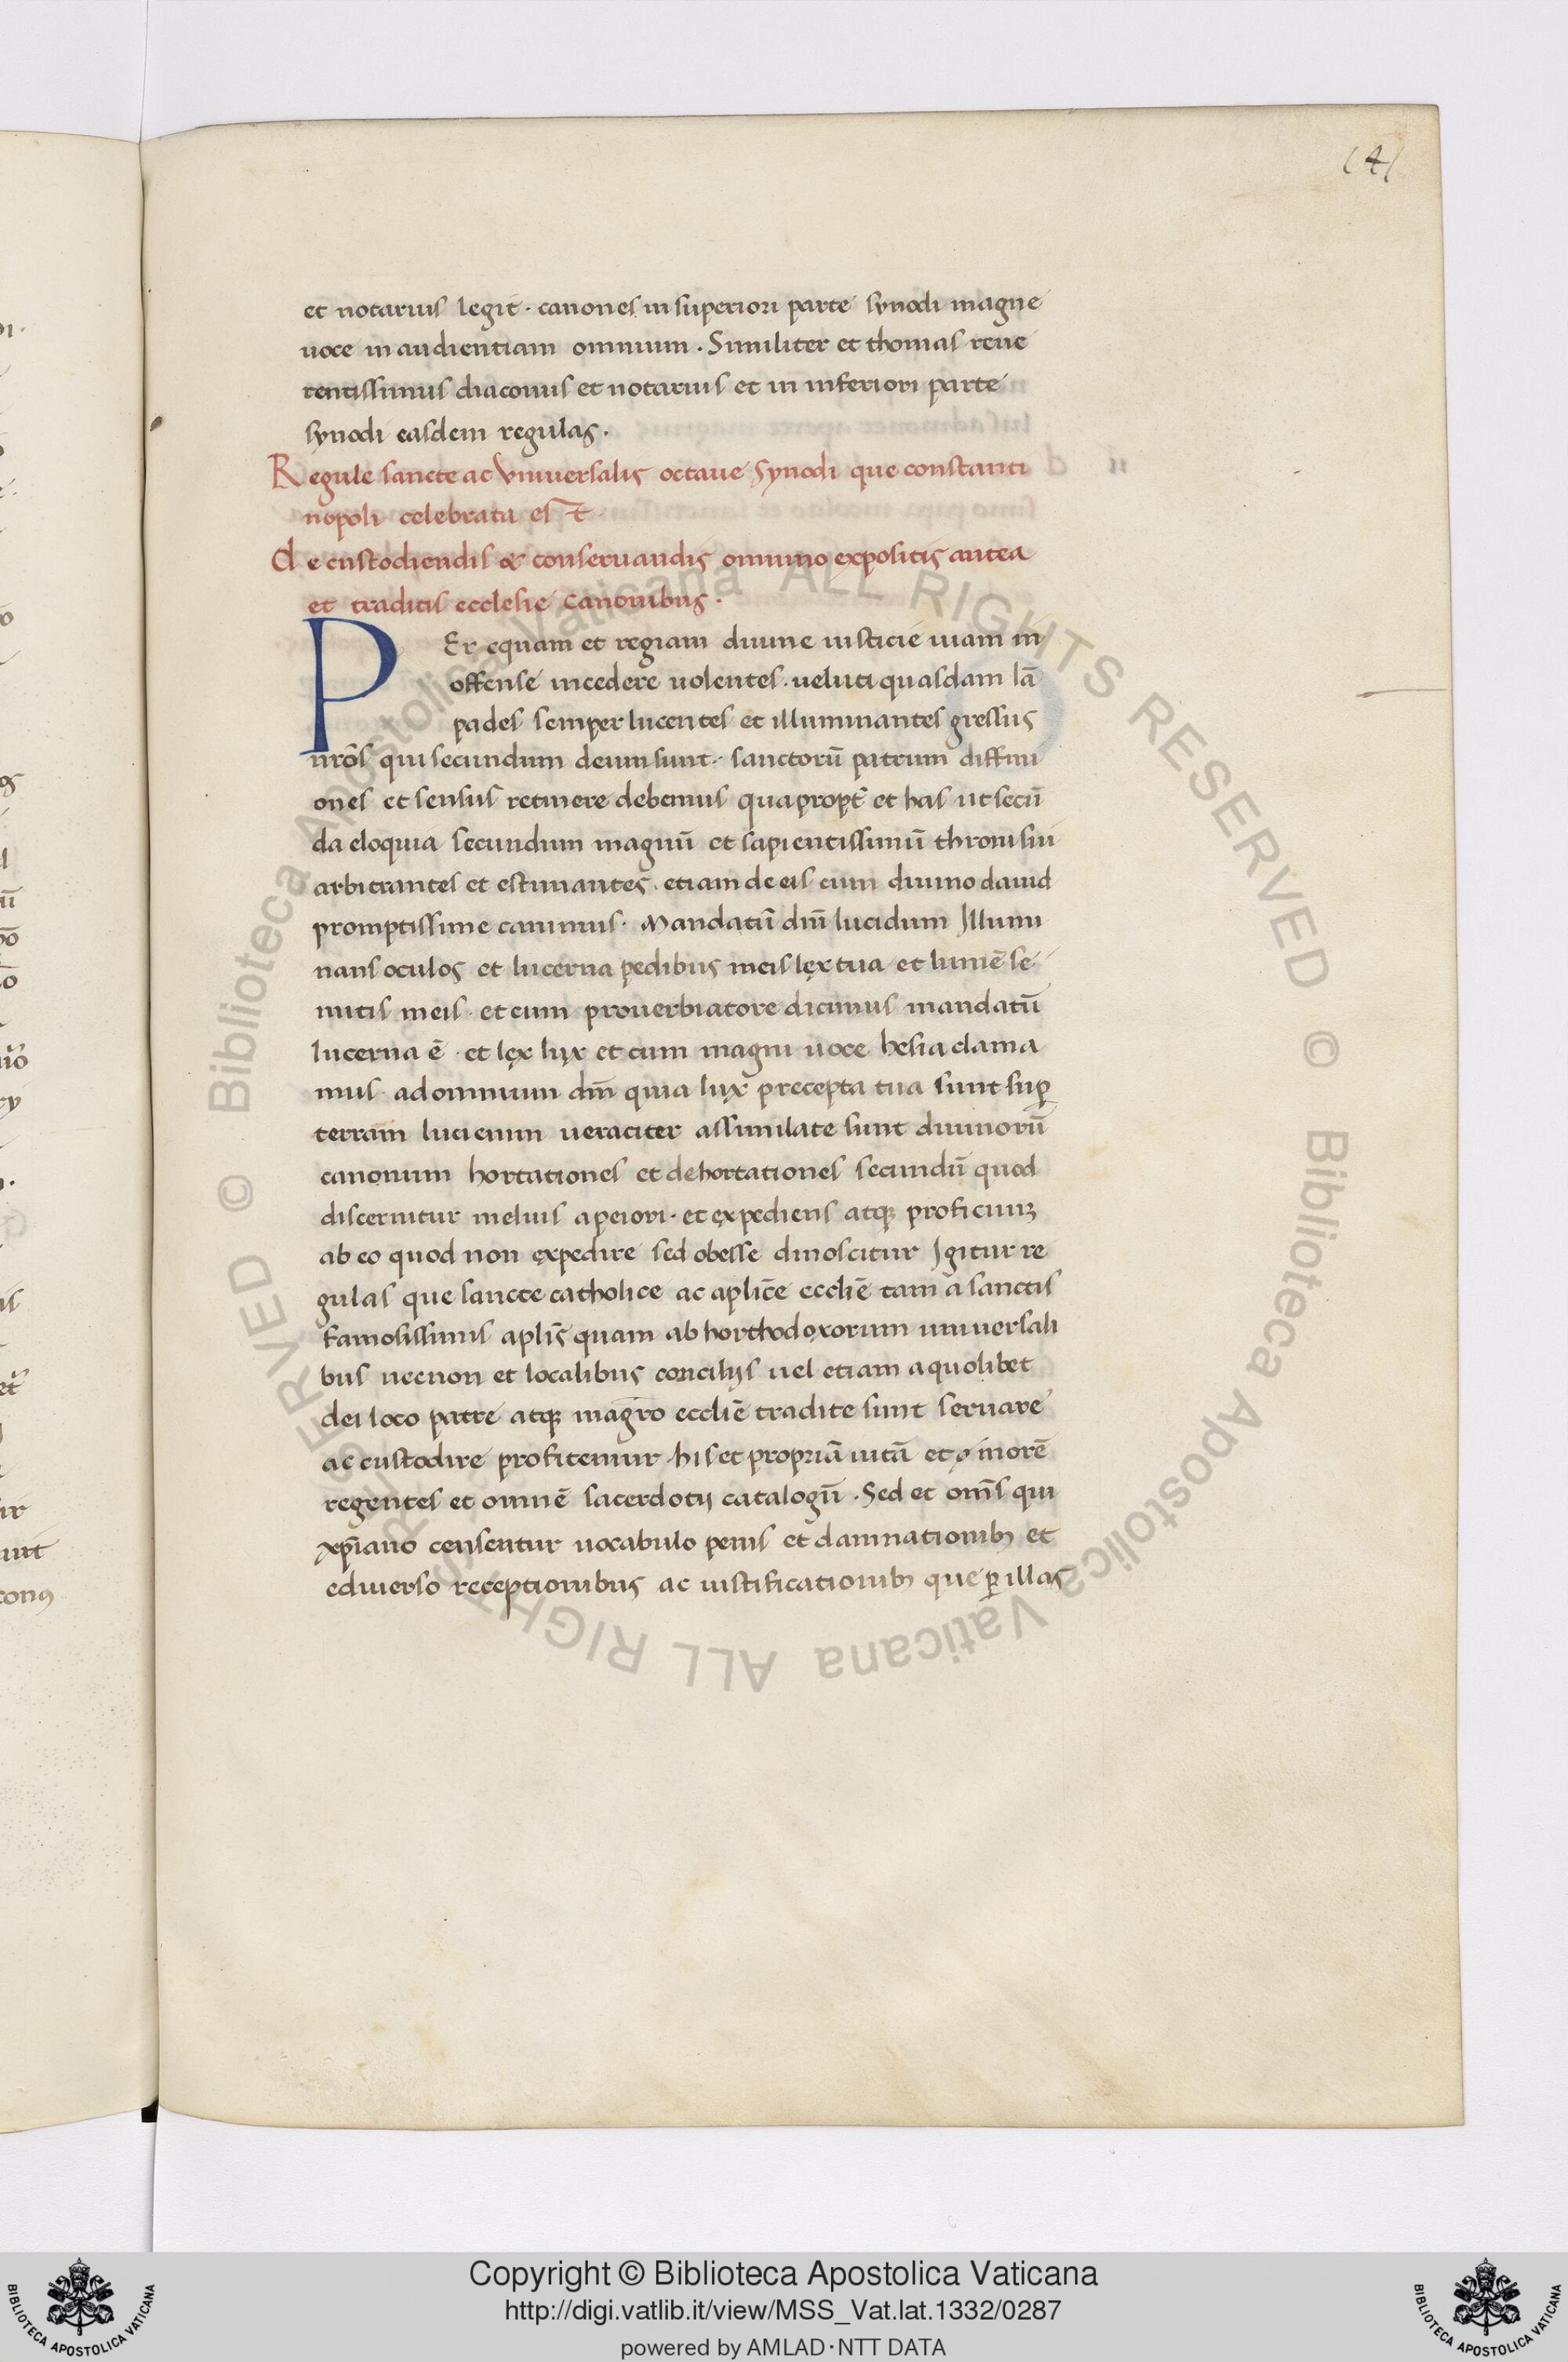 141
et notarius legit · canones in superiori parte synodi magne
uoce in audientiam omnium · Similiter et thomas reue
rentissimus diaconus et notarius et in inferiori parte
synodi easdem regulas ·
Regule sancte ac vniuersalis octaue synodi que constanti
nopoli celebrata est
de custodiendis & conseruandis omnino expositis antea
et traditis ecclesie canonibus ·
PEr equam et regiam diuine iusticie uiam in
offense incedere uolentes · ueluti quasdam lā
pades semper lucentes et illuminantes gressus
nrōs qui secundum deum sunt · sanctorū patrum diffini
ones et sensus retinere debemus quapropt̄ et has ut secū
da eloquia secundum magnū et sapientissimū throni sui
arbitrantes et estimantes · etiam de eis cum diuino dauid
promptissime canimus · Mandatū dnī lucidum Illumi
nans oculos et lucerna pedibus meis lex tua et lumē se
mitis meis · et cum prouerbiatore dicimus mandatū
lucerna ē · et lex lux et cum magni uoce hesia clama
mus · ad omnium dm̄ quia lux precepta tua sunt suꝑ
terram luci enim ueraciter assimilate sunt diuinorū
canonum hortationes et dehortationes secundū quod
discernitur melius a peiori · et expediens atqꝫ proficuuꝫ
ab eo quod non expedire sed obesse dinoscitur Igitur re
gulas que sancte catholice ac aplicē eccliē tam a sanctis
famosissimis aplīs quam ab horthodoxorum uniuersali
bus necnon et localibus concilijs uel etiam a quolibet
dei loco patre atqꝫ magr̄o eccliē tradite sunt seruare
ac custodire profitemur · his et propriā uitā et morē
regentes et omnē sacerdotij catalogū · Sed et omīs qui
xpīano censentur uocabulo penis et damnationibꝫ et
ediuerso receptionibus ac iustificationibꝫ que ꝑ illas
Copyright © Biblioteca Apostolica Vaticana
http://digi.vatlib.it/view/MSS_Vat.lat.1332/0287
powered by AMLAD·NTT DATA